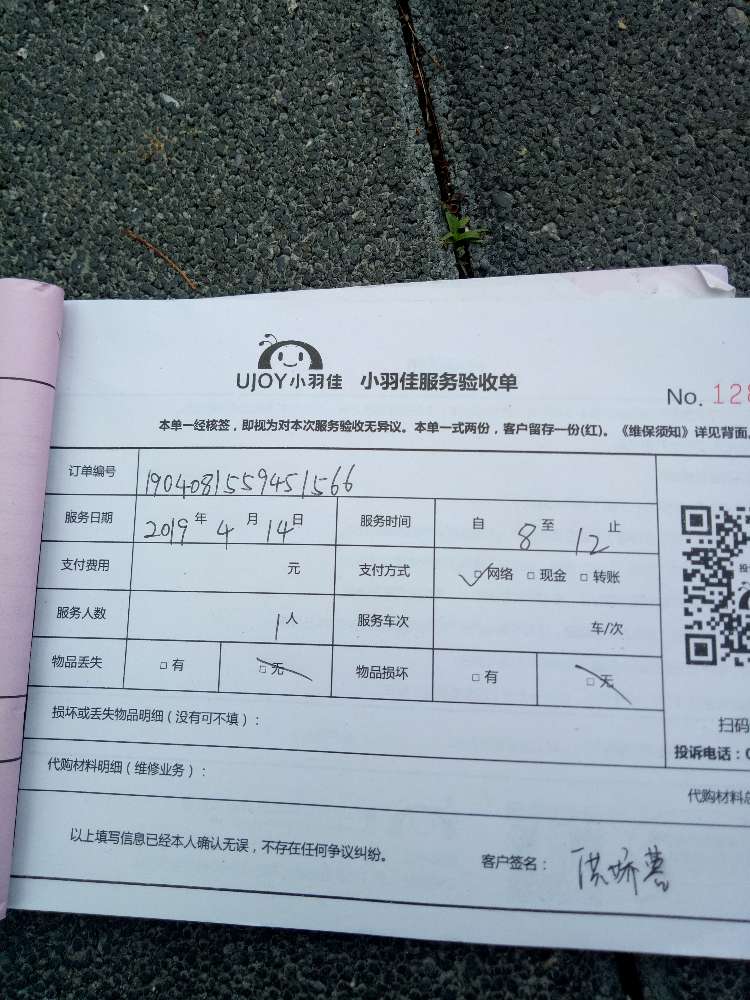 UJOY小羽佳 小羽佳服务验收单
No. 128
本单一经核签，即视为对本次服务验收无异议。本单一式两份，客户留存一份(红)。《维保须知》详见背面。
订单编号 1904081559451566
服务日期 2019年4月14日 服务时间 自8至12止
支付费用 元 支付方式 ☑网络 □现金 □转账
服务人数 1人 服务车次 车/次
物品丢失 □有 □无 物品损坏 □有 □无
损坏或丢失物品明细（没有可不填）：
扫码
投诉电话：0
代购材料明细（维修业务）：
代购材料总
以上填写信息已经本人确认无误，不存在任何争议纠纷。
客户签名：